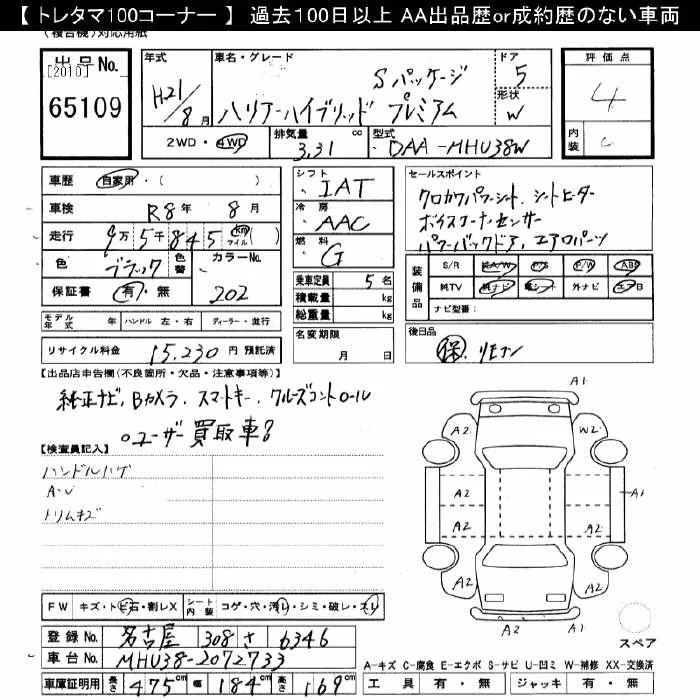 【 トレタマ100コーナー 】 過去100日以上 AA出品歴or成約歴のない車両
(複合機)対応用紙
出品No.
[2010]
65109
年式 車名・グレード ドア 評価点
Sパッケージ 5
H21/8月 ハリアーハイブリッド プレミアム 形状 W 4
2WD・4WD 排気量 3.31 cc 型式 DAA-MHU38W 内装 C
車歴 自家用・( )
車検 R8年 8月
走行 9万5千845 km マイル ( )
色 ブラック 色替 カラーNo. 202
保証書 有・無
シフト IAT
冷房 AAC
燃料 G
乗車定員 5名
積載量 kg
総重量 kg
名変期限 月 日
セールスポイント
クロカワパワーシート、シートヒーター
ボイスコーナーセンサー
パワーバックドア、エアロパーツ
装備品 S/R 純A/W P/S P/W ABS
純TV 純ナビ 革シート 外ナビ エアB
ナビ型番:
モデル年式 年 ハンドル 左・右 ディーラー・並行
リサイクル料金 15,230 円 預託済
後日品
保、リモコン
【出品店申告欄(不良箇所・欠品・注意事項等)】
純正ナビ、Bカメラ、スマートキー、クルーズコントロール
○ユーザー買取車!
【検査員記入】
ハンドルハゲ
A-U
トリムキズ
A1
A2 W2
A2 A2 A1
A2 A2
A2 A2
A2 A1
スペア
FW キズ・トビ石・割レX シート内装 コゲ・穴・汚レ・シミ・破レ・スレ
登録No. 名古屋 308 さ 6346
車台No. MHU38-2072733
車庫証明用 長さ 475cm 幅 184cm 高さ 169cm
A-キズ C-腐食 E-エクボ S-サビ U-凹ミ W-補修 XX-交換済
工具 有・無 ジャッキ 有・無